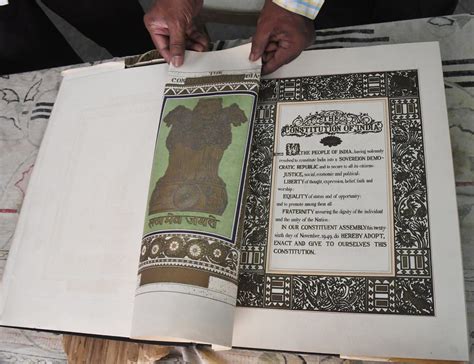 THE
सत्यमेव जयते
THE
CONSTITUTION OF INDIA
WE, THE PEOPLE OF INDIA, having solemnly
resolved to constitute India into a SOVEREIGN DEMO-
CRATIC REPUBLIC and to secure to all its citizens:
JUSTICE, social, economic and political;
LIBERTY of thought, expression, belief, faith and
worship;
EQUALITY of status and of opportunity;
and to promote among them all
FRATERNITY assuring the dignity of the individual
and the unity of the Nation;
IN OUR CONSTITUENT ASSEMBLY this twenty
sixth day of November 1949, do HEREBY ADOPT,
ENACT AND GIVE TO OURSELVES THIS
CONSTITUTION.